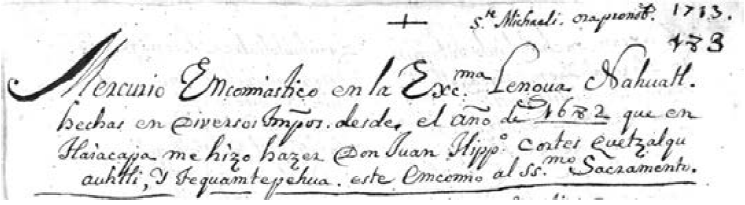 + Ste. Michaeli. ora pro nob. 1713.
183
Mercurio Encomiastico en la Exc.ma Lengua Nahuatl.
hechas en Diversos tmpos. desde, el año de 1682 que en
Tlaiacapa me hizo hazer Don Juan Hippo. Cortes Quetzalqu
auhtli, Y Tequamtepehua. este Encomio al SS.mo Sacramento.